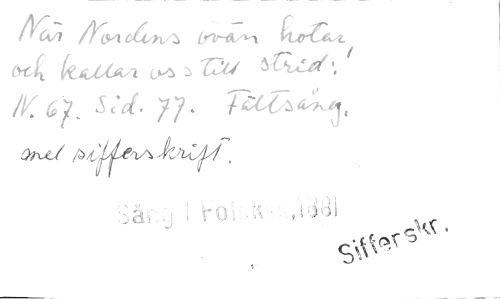 När Nordens ovän hotar,
och kallar oss till strid:!
N. 67. Sid. 77. Fältsång.
med sifferskrift.
Sång i Folksk, 1881
Sifferskr.